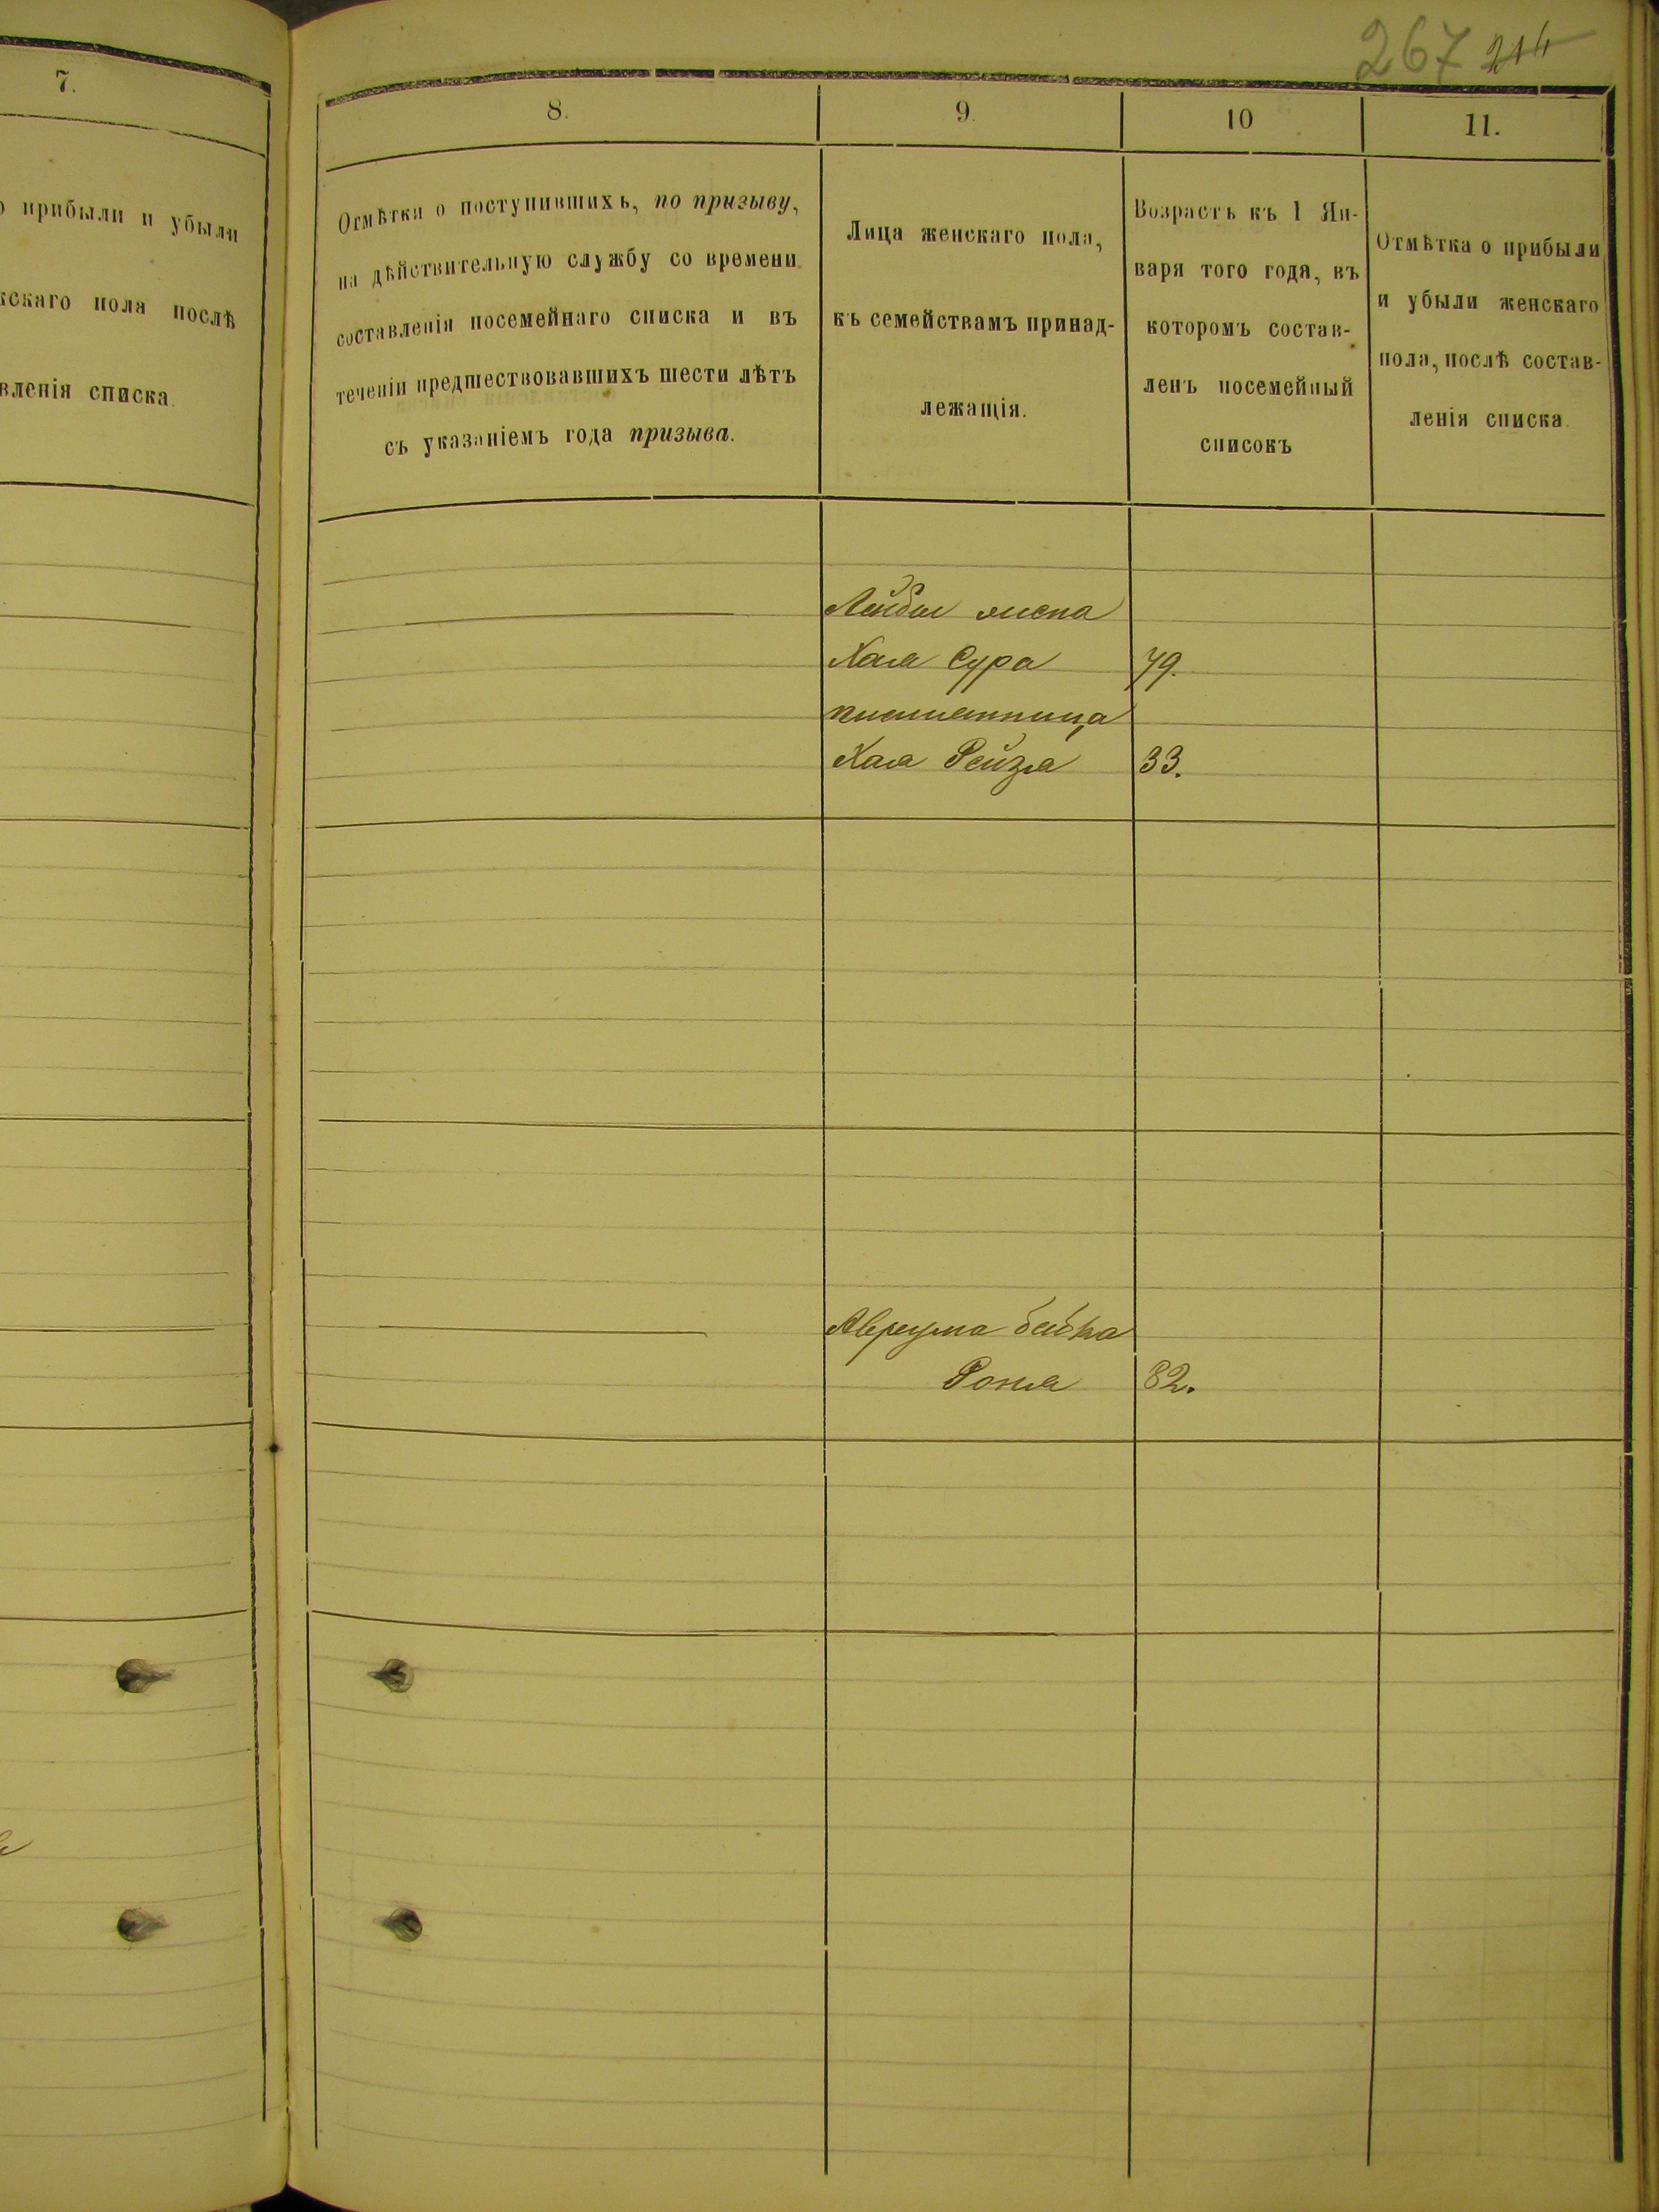 267 214
7.
о прибыли и убыли
жскаго пола послѣ
вленія списка.
8.
Отмѣтки о поступившихъ, по призыву,
на дѣйствительную службу со времени
составленія посемейнаго списка и въ
теченіи предшествовавшихъ шести лѣтъ
съ указаніемъ года призыва.
9.
Лица женскаго пола,
къ семействамъ принад-
лежащія.
10
Возрастъ къ 1 Ян-
варя того года, въ
которомъ состав-
ленъ посемейный
списокъ
11.
Отмѣтка о прибыли
и убыли женскаго
пола, послѣ состав-
ленія списка.
Лейбы жена
Хая Сура 79.
племянница
Хая Рейзя 33.
Авреума
Роня 82.